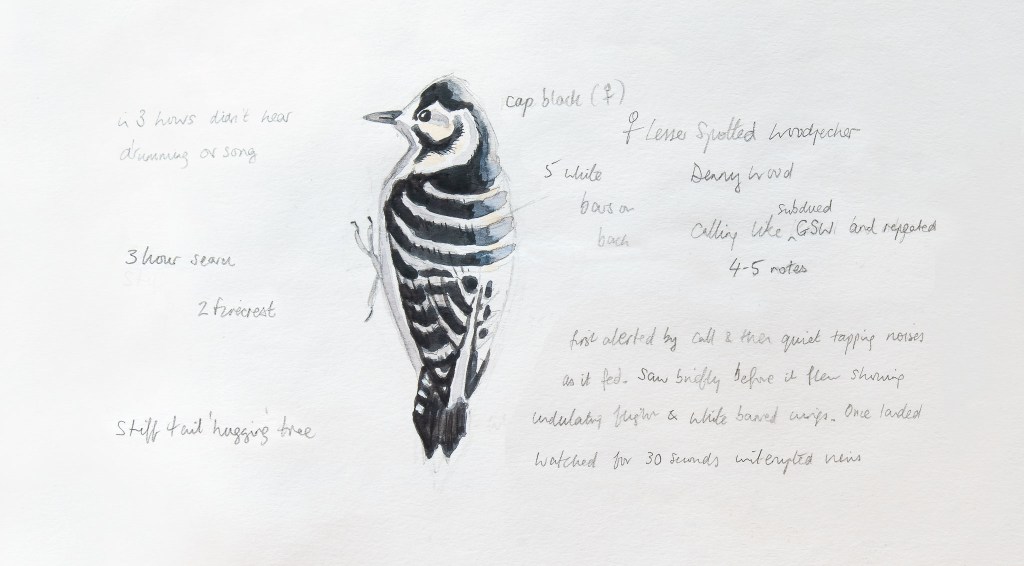 in 3 hours didn't hear
drumming or song
3 hour search
2 firecrest
Stiff tail 'hugging' tree
cap black (♀)
5 white
bars on
back
♀ Lesser Spotted Woodpecker
Denny Wood
subdued
Calling like ^ GSW and repeated
4-5 notes
first alerted by call & then quiet tapping noises
as it fed. Saw briefly before it flew showing
undulating flight & white barred wings. Once landed
watched for 30 seconds views